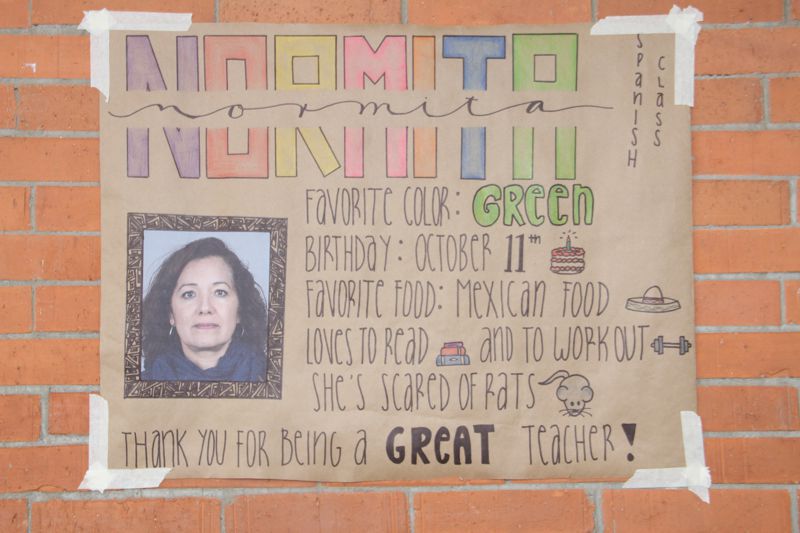 NORMITA
normita
Spanish Class
FAVORITE COLOR: GReen
BIRTHDAY: OCTOBER 11th
FAVORITE FOOD: MEXICAN FOOD
LOVES TO READ AND TO WORK OUT
SHE'S SCARED OF RATS
THANK YOU FOR BEING A GREAT TEACHER!